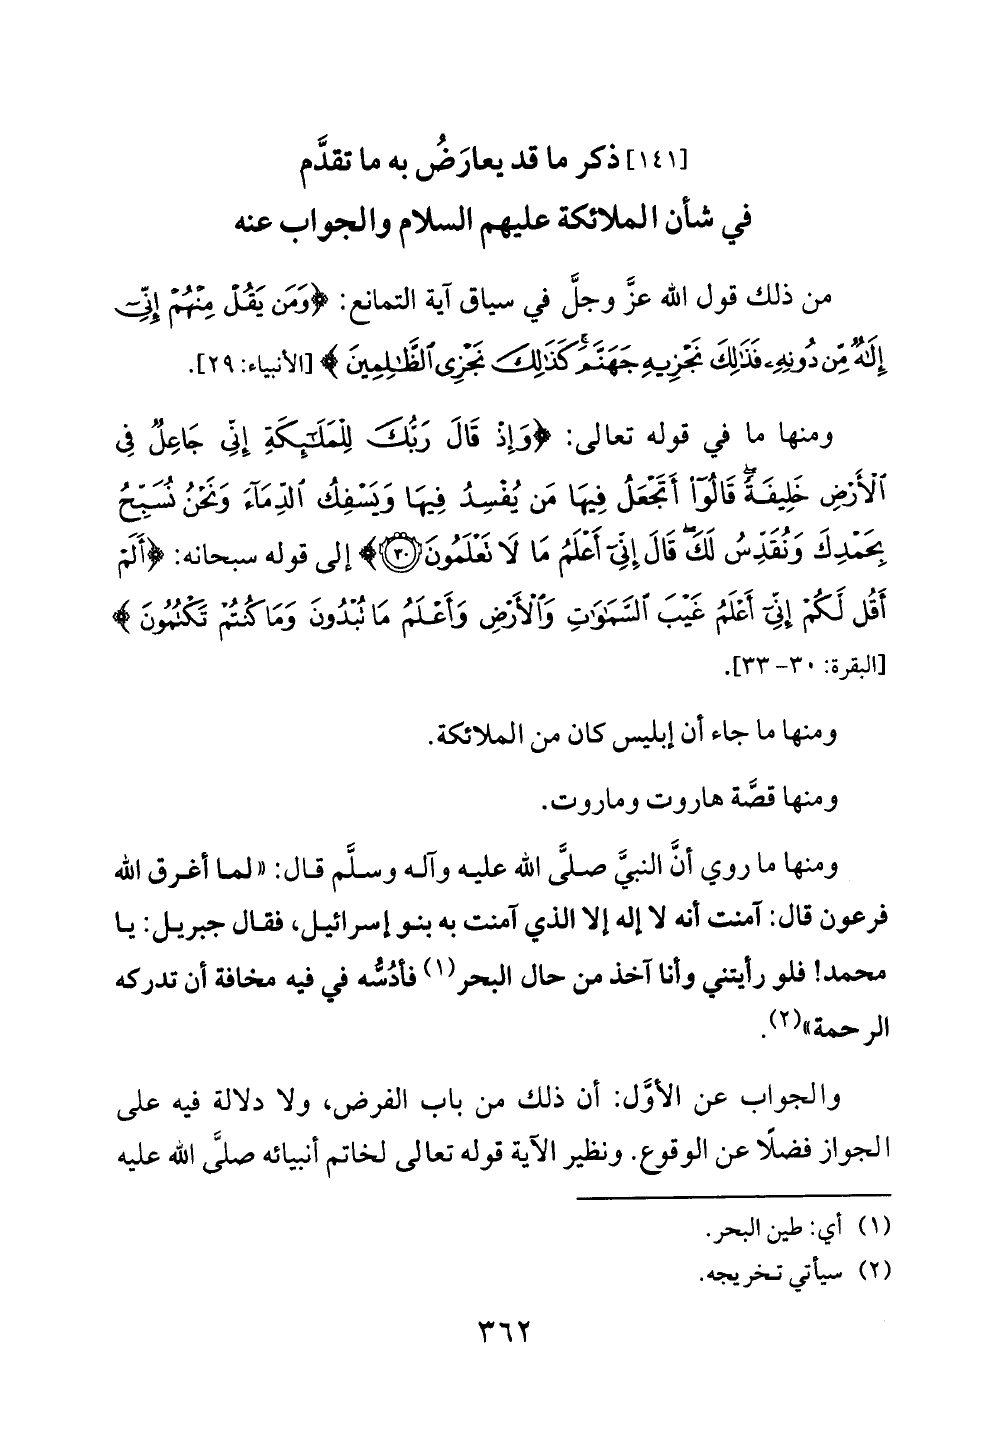 [١٤١] ذكر ما قد يعارَضُ به ما تقدَّم
في شأن الملائكة عليهم السلام والجواب عنه
من ذلك قول الله عزَّ وجلَّ في سياق آية التمانع: ﴿وَمَن يَقُلْ مِنْهُمْ إِنِّىٓ
إِلَٰهٌ مِّن دُونِهِۦ فَذَٰلِكَ نَجْزِيهِ جَهَنَّمَ ۚ كَذَٰلِكَ نَجْزِى ٱلظَّٰلِمِينَ﴾ [الأنبياء: ٢٩].
ومنها ما في قوله تعالى: ﴿وَإِذْ قَالَ رَبُّكَ لِلْمَلَٰٓئِكَةِ إِنِّى جَاعِلٌ فِى
ٱلْأَرْضِ خَلِيفَةً ۖ قَالُوٓا۟ أَتَجْعَلُ فِيهَا مَن يُفْسِدُ فِيهَا وَيَسْفِكُ ٱلدِّمَآءَ وَنَحْنُ نُسَبِّحُ
بِحَمْدِكَ وَنُقَدِّسُ لَكَ ۖ قَالَ إِنِّىٓ أَعْلَمُ مَا لَا تَعْلَمُونَ ٣٠﴾ إلى قوله سبحانه: ﴿أَلَمْ
أَقُل لَّكُمْ إِنِّىٓ أَعْلَمُ غَيْبَ ٱلسَّمَٰوَٰتِ وَٱلْأَرْضِ وَأَعْلَمُ مَا تُبْدُونَ وَمَا كُنتُمْ تَكْتُمُونَ﴾
[البقرة: ٣٠-٣٣].
ومنها ما جاء أن إبليس كان من الملائكة.
ومنها قصَّة هاروت وماروت.
ومنها ما روي أنَّ النبيَّ صلَّى الله عليه وآله وسلَّم قال: «لما أغرق الله
فرعون قال: آمنت أنه لا إله إلا الذي آمنت به بنو إسرائيل، فقال جبريل: يا
محمد! فلو رأيتني وأنا آخذ من حال البحر(١) فأدُسُّه في فيه مخافة أن تدركه
الرحمة»(٢).
والجواب عن الأوَّل: أن ذلك من باب الفرض، ولا دلالة فيه على
الجواز فضلًا عن الوقوع. ونظير الآية قوله تعالى لخاتم أنبيائه صلَّى الله عليه
(١) أي: طين البحر.
(٢) سيأتي تخريجه.
٣٦٢